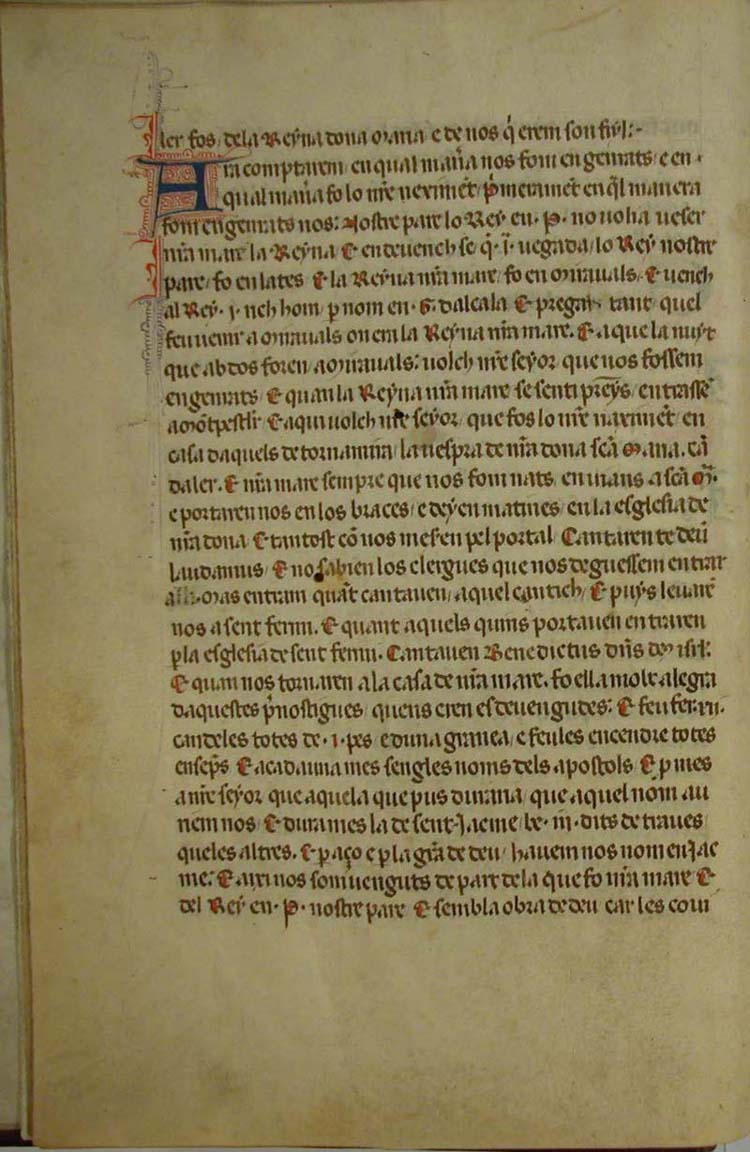 ler fos, dela Reyna dona Maria e de nos q̉ erem son fiyl:-
Ara comptarem en qual maña nos fom engenrats, e en ·
qual maña fo lo nr̃e nexim̃et. P̃merament en q̃l manera
fom engenrats nos: Nostre pare lo Rey en · P · no uolia ueser
nr̃a mare la Reyna E endeuench se q̃ · i̅ · uegada, lo Rey nostre
pare, fo en lates E la Reyna nr̃a mare, fo en Miravals, E uench
al Rey · i · rich hom p nom en · G · dalcala E pregal tant quel
feu uenir a Miravals on era la Reyna nr̃a mare. E aquela nuyt
que abdos foren a Miravals: uolch nr̃e seyor que nos fossem
engenrats E quan la Reyna nr̃a mare se senti prẽys, entrassẽ
a Mõtpestler E aqui uolch nr̃e seyor, que fos lo nr̃e naximẽt en
casa daquels de tornamira la uespra de nr̃a dona sc̃a Maria. cã
daler. E nr̃a mare sempre que nos fom nats, enuians a sc̃a Mr̃.
e portaren nos en los braces, e deyen matines, en la esglesia de
nr̃a dona E tantost cõ nos mesen pel portal Cantaren te deũ
laudamus E no sabien los clergues que nos deguessem entrar
mas entram quãt cantauen, aquel cantich, E puys leuarẽ
nos a sent fermi. E quant aquels quins portauen entraren
p la esglesia de sent fermi. Cantauen Benedictus dñs deus isrl:
E quan nos tornaren a la casa de nr̃a mare. fo ella molt alegra
daquestes p̃nostigues quens eren esdeuengudes: E feu fer. xii.
candeles totes de · i · pes e duna granea, e feules encendre totes
ensẽps E a cadauna mes sengles noms dels apostols E p mes
a nr̃e seyor que aquela que pus duraria que aquel nom au
riem nos E dura mes la de sent Jacme be · iii · dits de traues
queles altres. E p aço e p la grã de deu, hauem nos nom en Jac
me: E axi nos som uenguts de part dela que fo nr̃a mare E
del Rey en · P · nostre pare E sembla obra de deu car les coui